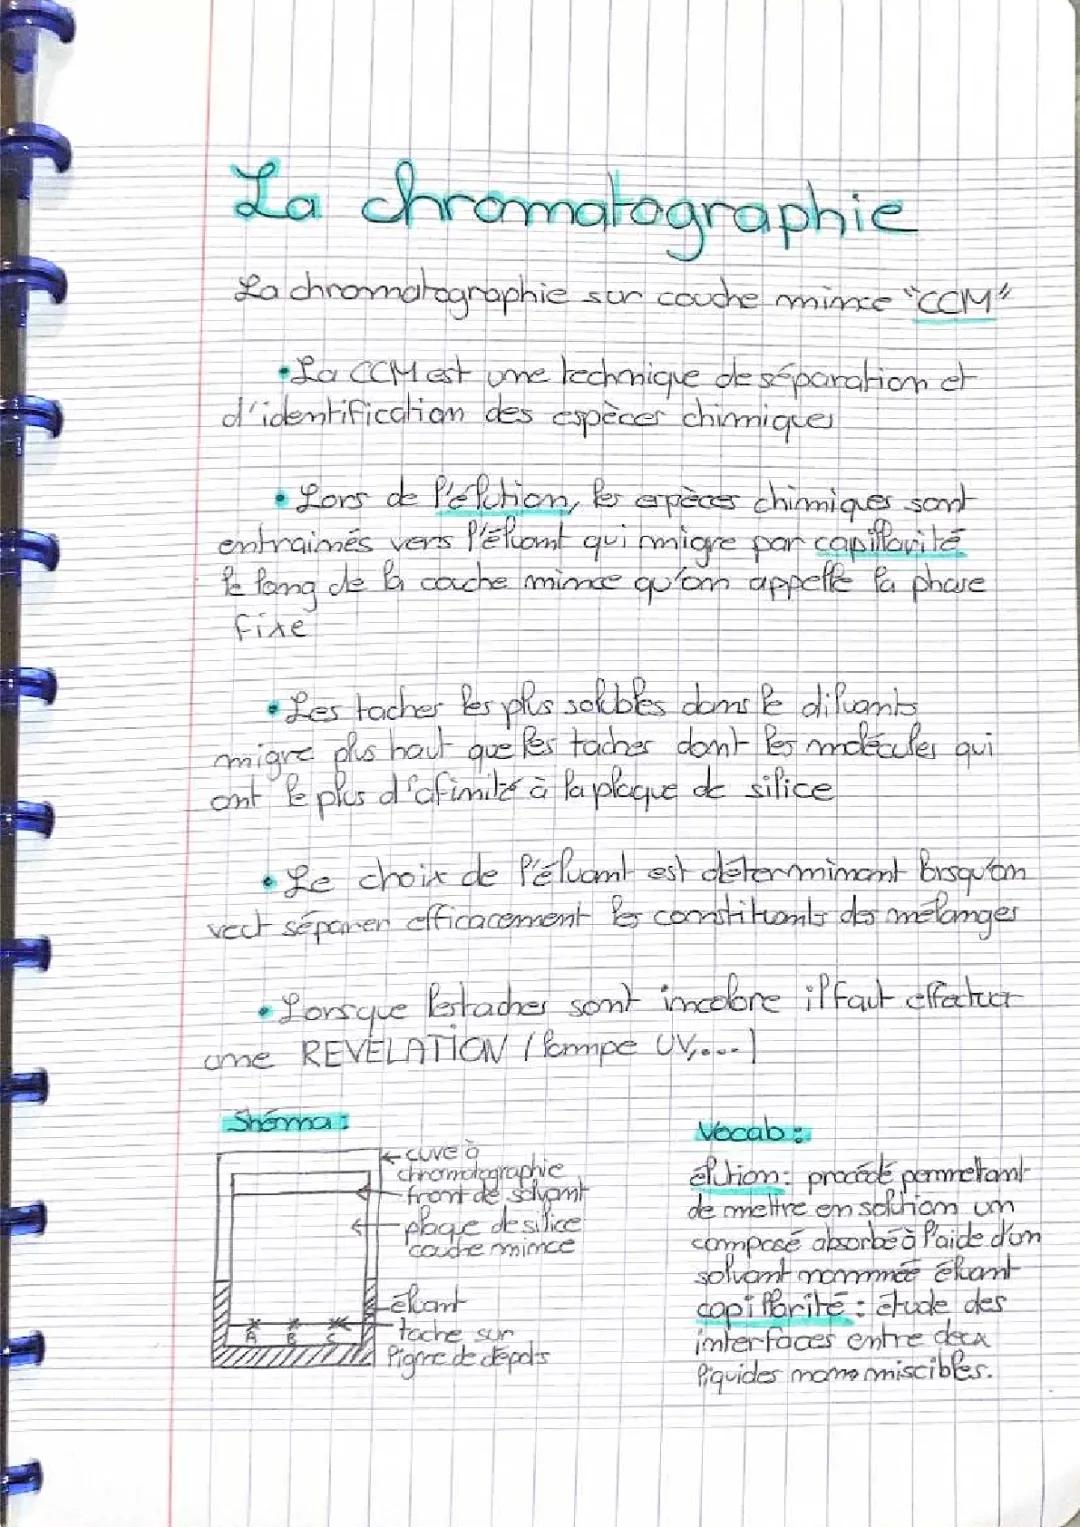 La chromatographie
La chromatographie sur couche mince "CCM"
•La CCM est une technique de séparation et
d'identification des espèces chimiques
• Lors de l'élution, les espèces chimiques sont
entrainés vers l'éluant qui migre par capillarité
le long de la couche mince qu'on appelle la phase
fixe
• Les taches les plus solubles dans le diluants
migre plus haut que les taches dont les molécules qui
ont le plus d'afinité à la plaque de silice
• Le choix de l'éluant est déterminant lorsqu'on
veut séparer efficacement les constituants des mélanges
• Lorsque les taches sont incolore il faut effectuer
une REVELATION (lampe UV,...)
Shéma :
cuve à
chromatographie
front de solvant
plaque de silice
couche mince
éluant
A B C
tache sur
ligne de dépots
Vocab :
élution : procédé permettant
de mettre en solution un
composé absorbé à l'aide d'un
solvant nommée éluant
capillarité : étude des
interfaces entre deux
liquides non miscibles.